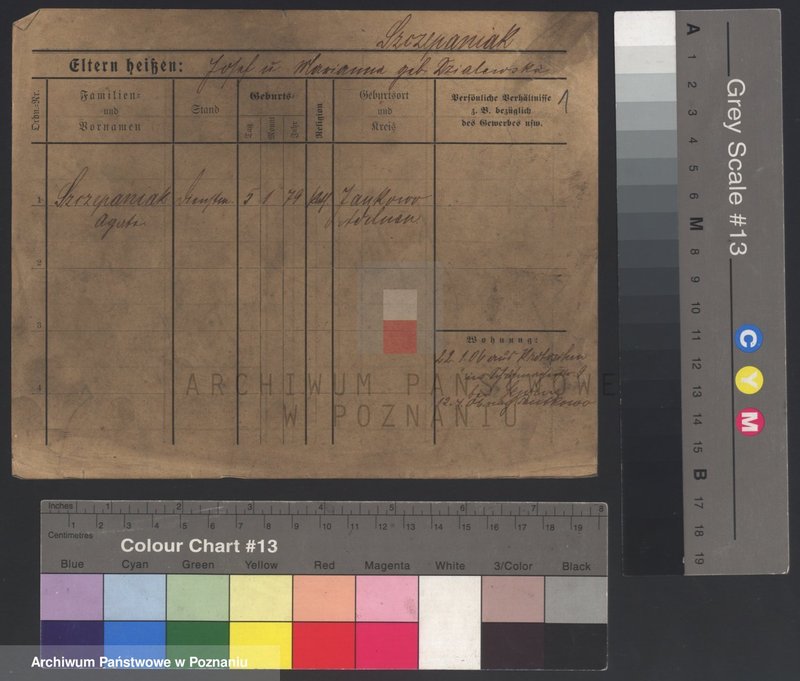 Szczepaniak
Eltern heißen: Josef u Marianna geb. Dzialowska
Ordn.-Nr.
Familien-
und
Vornamen
Stand
Geburts-
Tag
Monat
Jahr
Religion
Geburtsort
und
Kreis
Persönliche Verhältnisse
z. B. bezüglich
des Gewerbes usw.
1
1
Szczepaniak
Agata
5 1 79 kath
Jankowo
Adelnau
2
3
4
Wohnung:
22.1.06 aus
ARCHIWUM PAŃSTWOWE
W POZNANIU
Inches 1 2 3 4 5 6 7 8
1 2 3 4 5 6 7 8 9 10 11 12 13 14 15 16 17 18 19
Centimetres
Colour Chart #13
Blue Cyan Green Yellow Red Magenta White 3/Color Black
Archiwum Państwowe w Poznaniu
Grey Scale #13
C Y M
A 1 2 3 4 5 6 M 8 9 10 11 12 13 14 15 B 17 18 19